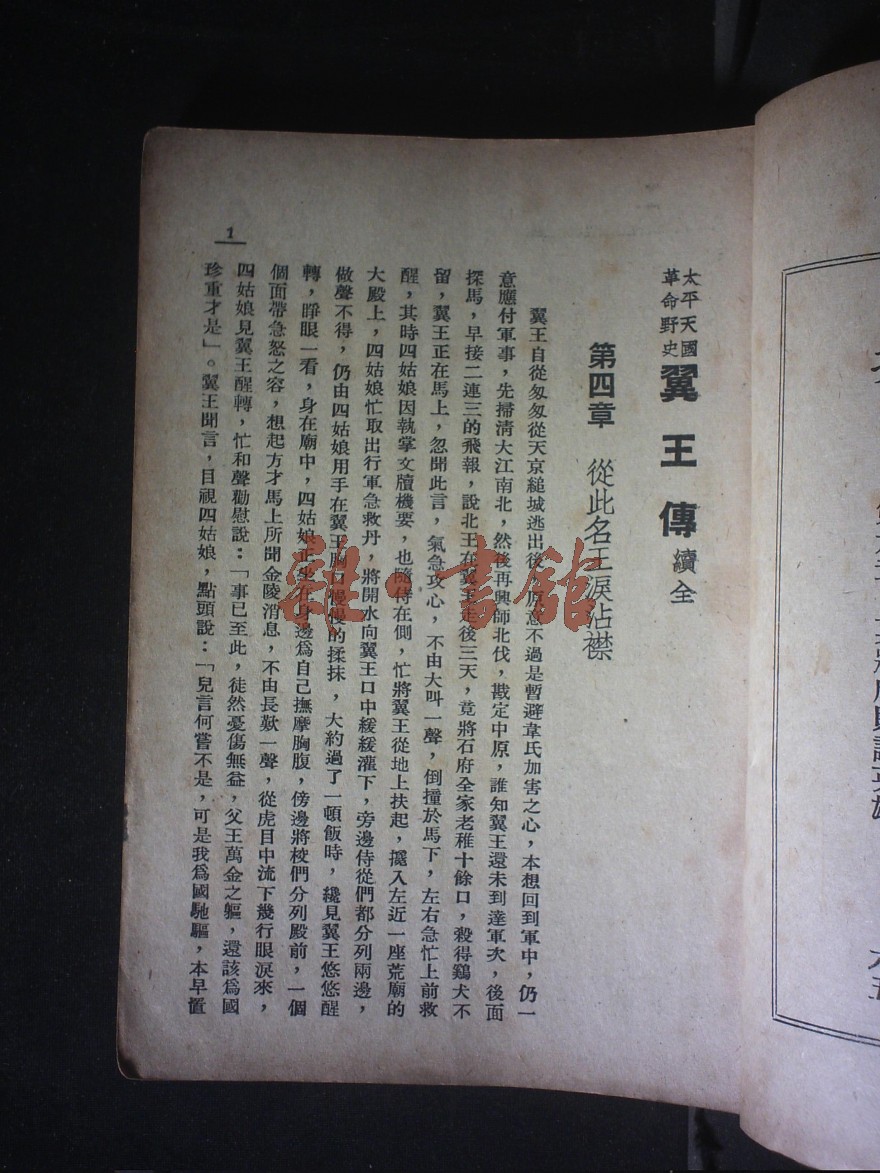 太平天國
革命野史
翼王傳 續全
第四章 從此名王淚沾襟
翼王自從匆匆從天京縋城逃出後，原意不過是暫避韋氏加害之心，本想回到軍中，仍一
意應付軍事，先掃清大江南北，然後再興師北伐，戡定中原，誰知翼王還未到達軍次，後面
探馬，早接二連三的飛報，說北王在翼王走後三天，竟將石府全家老稚十餘口，殺得鷄犬不
留，翼王正在馬上，忽聞此言，氣急攻心，不由大叫一聲，倒撞於馬下，左右急忙上前救
醒，其時四姑娘因執掌文牘機要，也隨侍在側，忙將翼王從地上扶起，擡入左近一座荒廟的
大殿上，四姑娘忙取出行軍急救丹，將開水向翼王口中緩緩灌下，旁邊侍從們都分列兩邊，
做聲不得，仍由四姑娘用手在翼王胸口慢慢的揉抹，大約過了一頓飯時，纔見翼王悠悠醒
轉，睜眼一看，身在廟中，四姑娘正坐在身邊爲自己撫摩胸腹，傍邊將校們分列殿前，一個
個面帶急怒之容，想起方才馬上所聞金陵消息，不由長歎一聲，從虎目中流下幾行眼淚來，
四姑娘見翼王醒轉，忙和聲勸慰說：「事已至此，徒然憂傷無益，父王萬金之軀，還該爲國
珍重才是」。翼王聞言，目視四姑娘，點頭說：「兒言何嘗不是，可是我爲國馳驅，本早置
1
雜·書館